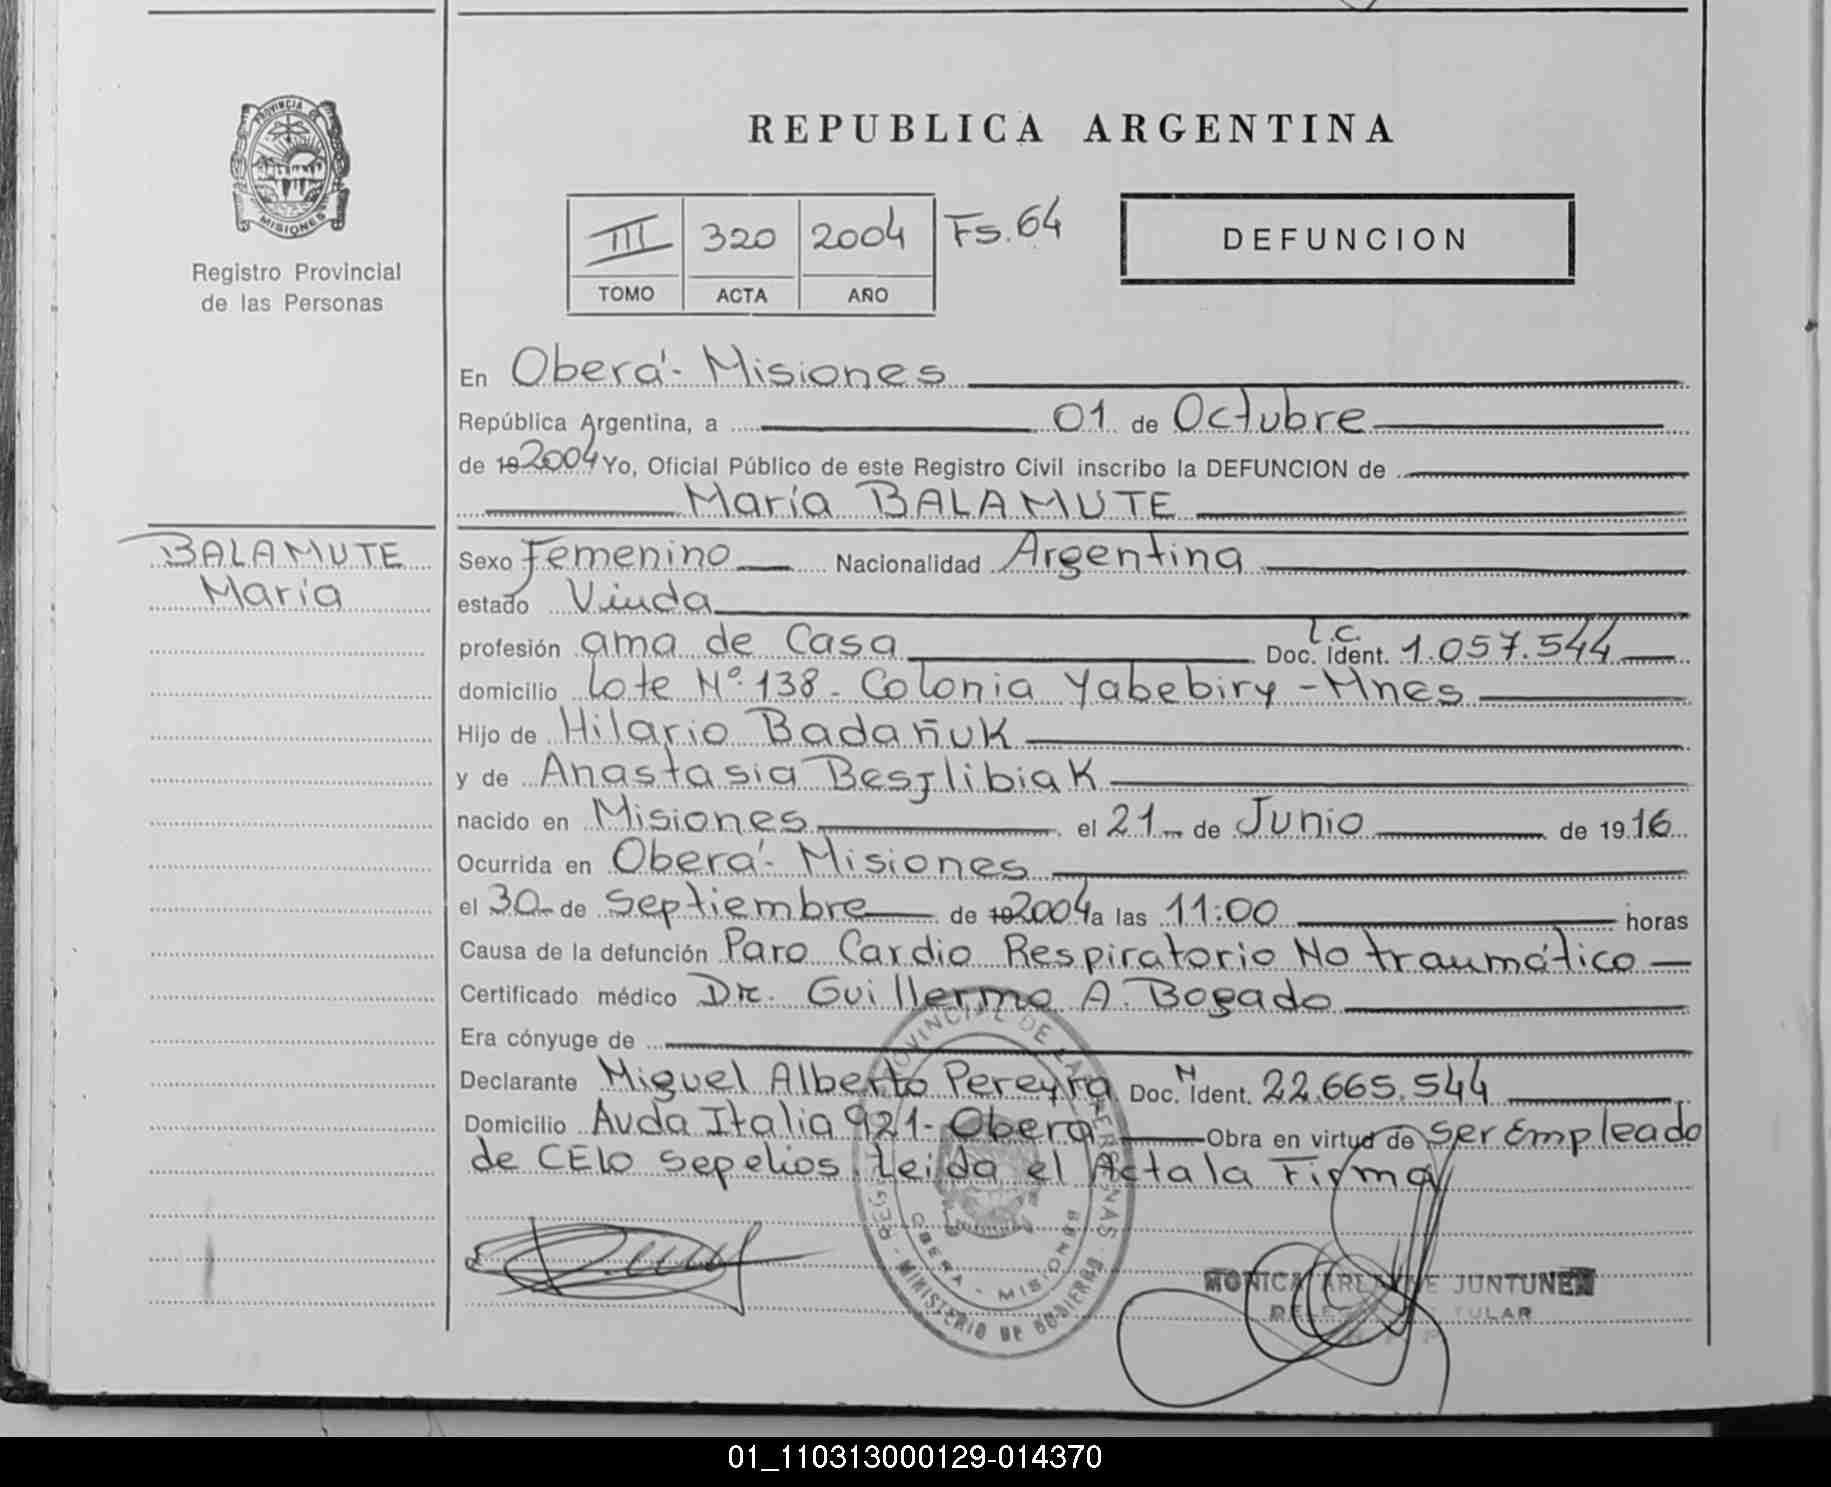 PROVINCIA DE
MISIONES
Registro Provincial
de las Personas
REPUBLICA ARGENTINA
III 320 2004 Fs. 64
TOMO ACTA AÑO
DEFUNCION
En Oberá - Misiones
República Argentina, a 01 de Octubre
de 19 2004 Yo, Oficial Público de este Registro Civil inscribo la DEFUNCION de
María BALAMUTE
BALAMUTE
María
Sexo Femenino Nacionalidad Argentina
estado Viuda
profesión ama de Casa Doc. Ident. L.C. 1.057.544
domicilio Lote Nº 138 - Colonia Yabebiry - Mnes
Hijo de Hilario Badañuk
y de Anastasia Besjlibiak
nacido en Misiones el 21 de Junio de 1916
Ocurrida en Oberá - Misiones
el 30 de Septiembre de 19 2004 a las 11:00 horas
Causa de la defunción Paro Cardio Respiratorio No traumático
Certificado médico Dr. Guillermo A. Bogado
Era cónyuge de
Declarante Miguel Alberto Pereyra Doc. N Ident. 22.665.544
Domicilio Avda Italia 921 - Obera Obra en virtud de ser Empleado
de CELO sepelios. Leida el Acta la Firma
PROVINCIAL DE LAS PERSONAS
OBERA - MISIONES
MINISTERIO DE GOBIERNO
MONICA JUNTUNEN
01_110313000129-014370